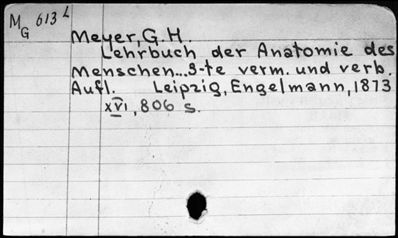 M G 613 L
Meyer, G. H.
Lehrbuch der Anatomie des
Menschen...3-te verm. und verb.
Aufl. Leipzig, Engelmann, 1873
XVI, 806 s.